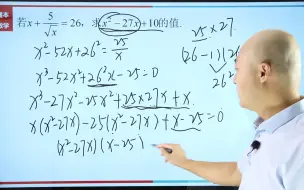 课本
数学
若x+5/√x=26，求x²-27x+10的值.
x²-52x+26²=25/x
x³-52x²+26²x-25=0
x³-27x²-25x²+25×27x+x
x(x²-27x)-25(x²-27x)+x-25=0
(x²-27x)(x-25)
25×27
(26-1)(26
26²